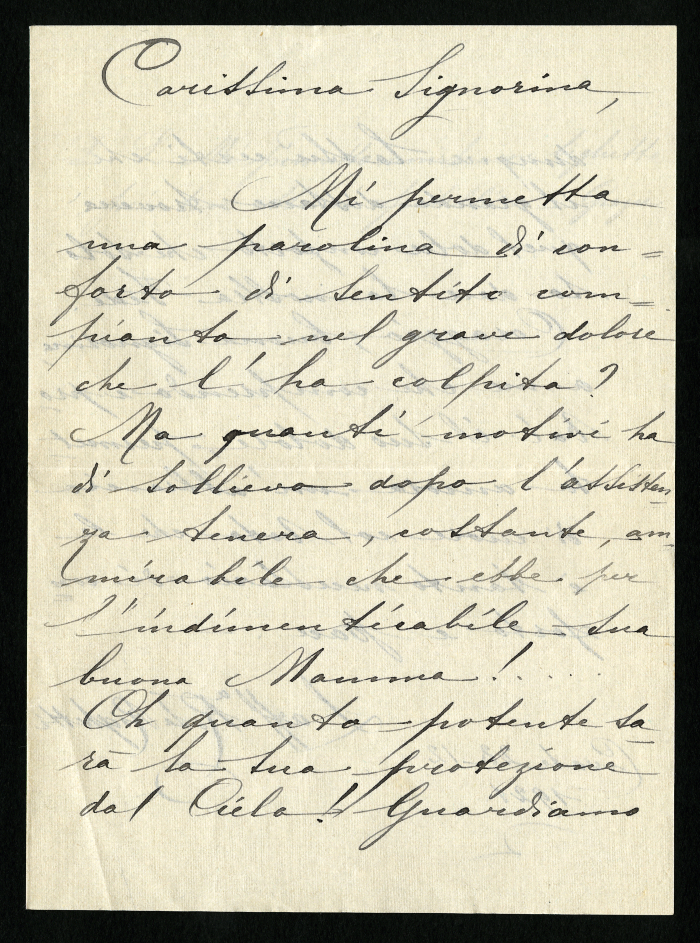 Carissima Signorina,
Mi permetta
una parolina di con=
forto di sentito com=
pianto nel grave dolore
che l'ha colpita?
Ma quanti motivi ha
di sollievo dopo l'assisten
za tenera, costante, am-
mirabile che ebbe per
l'indimenticabile sua
buona Mamma!.....
Oh quanto potente sa
rà la sua protezione
dal Cielo! Guardiamo